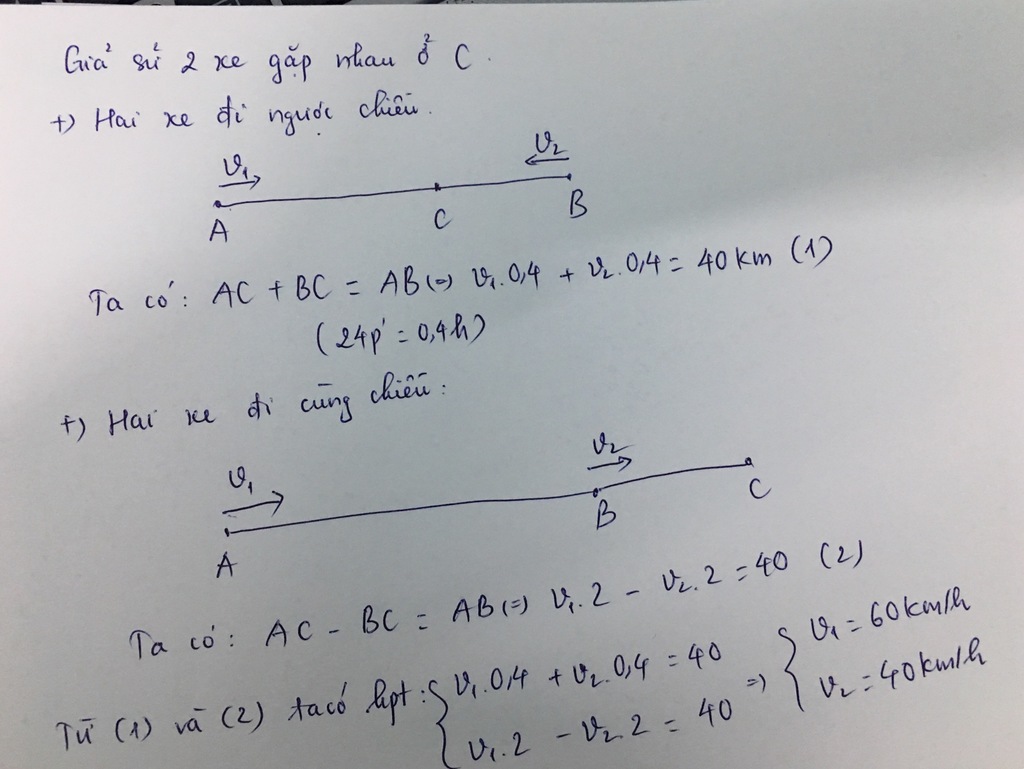 Giả sử 2 xe gặp nhau ở C.
+) Hai xe đi ngược chiều.
v₁ v₂
A C B
Ta có: AC + BC = AB (=) v₁.0,4 + v₂.0,4 = 40 km (1)
(24p' = 0,4h)
+) Hai xe đi cùng chiều:
v₁ v₂
A B C
Ta có: AC - BC = AB (=) v₁.2 - v₂.2 = 40 (2)
Từ (1) và (2) ta có hpt: { v₁.0,4 + v₂.0,4 = 40 =) { v₁ = 60km/h
v₁.2 - v₂.2 = 40 v₂ = 40km/h